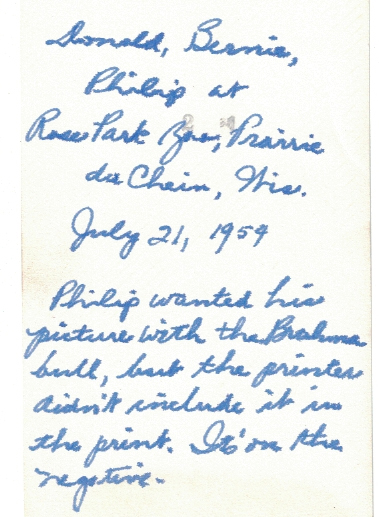 Donald, Bernie,
Philip at
Rose Park Zoo, Prairie
du Chein, Wis.
July 21, 1959
Philip wanted his
picture with the Brahma
bull, but the printer
didn't include it in
the print. It's on the
negative.